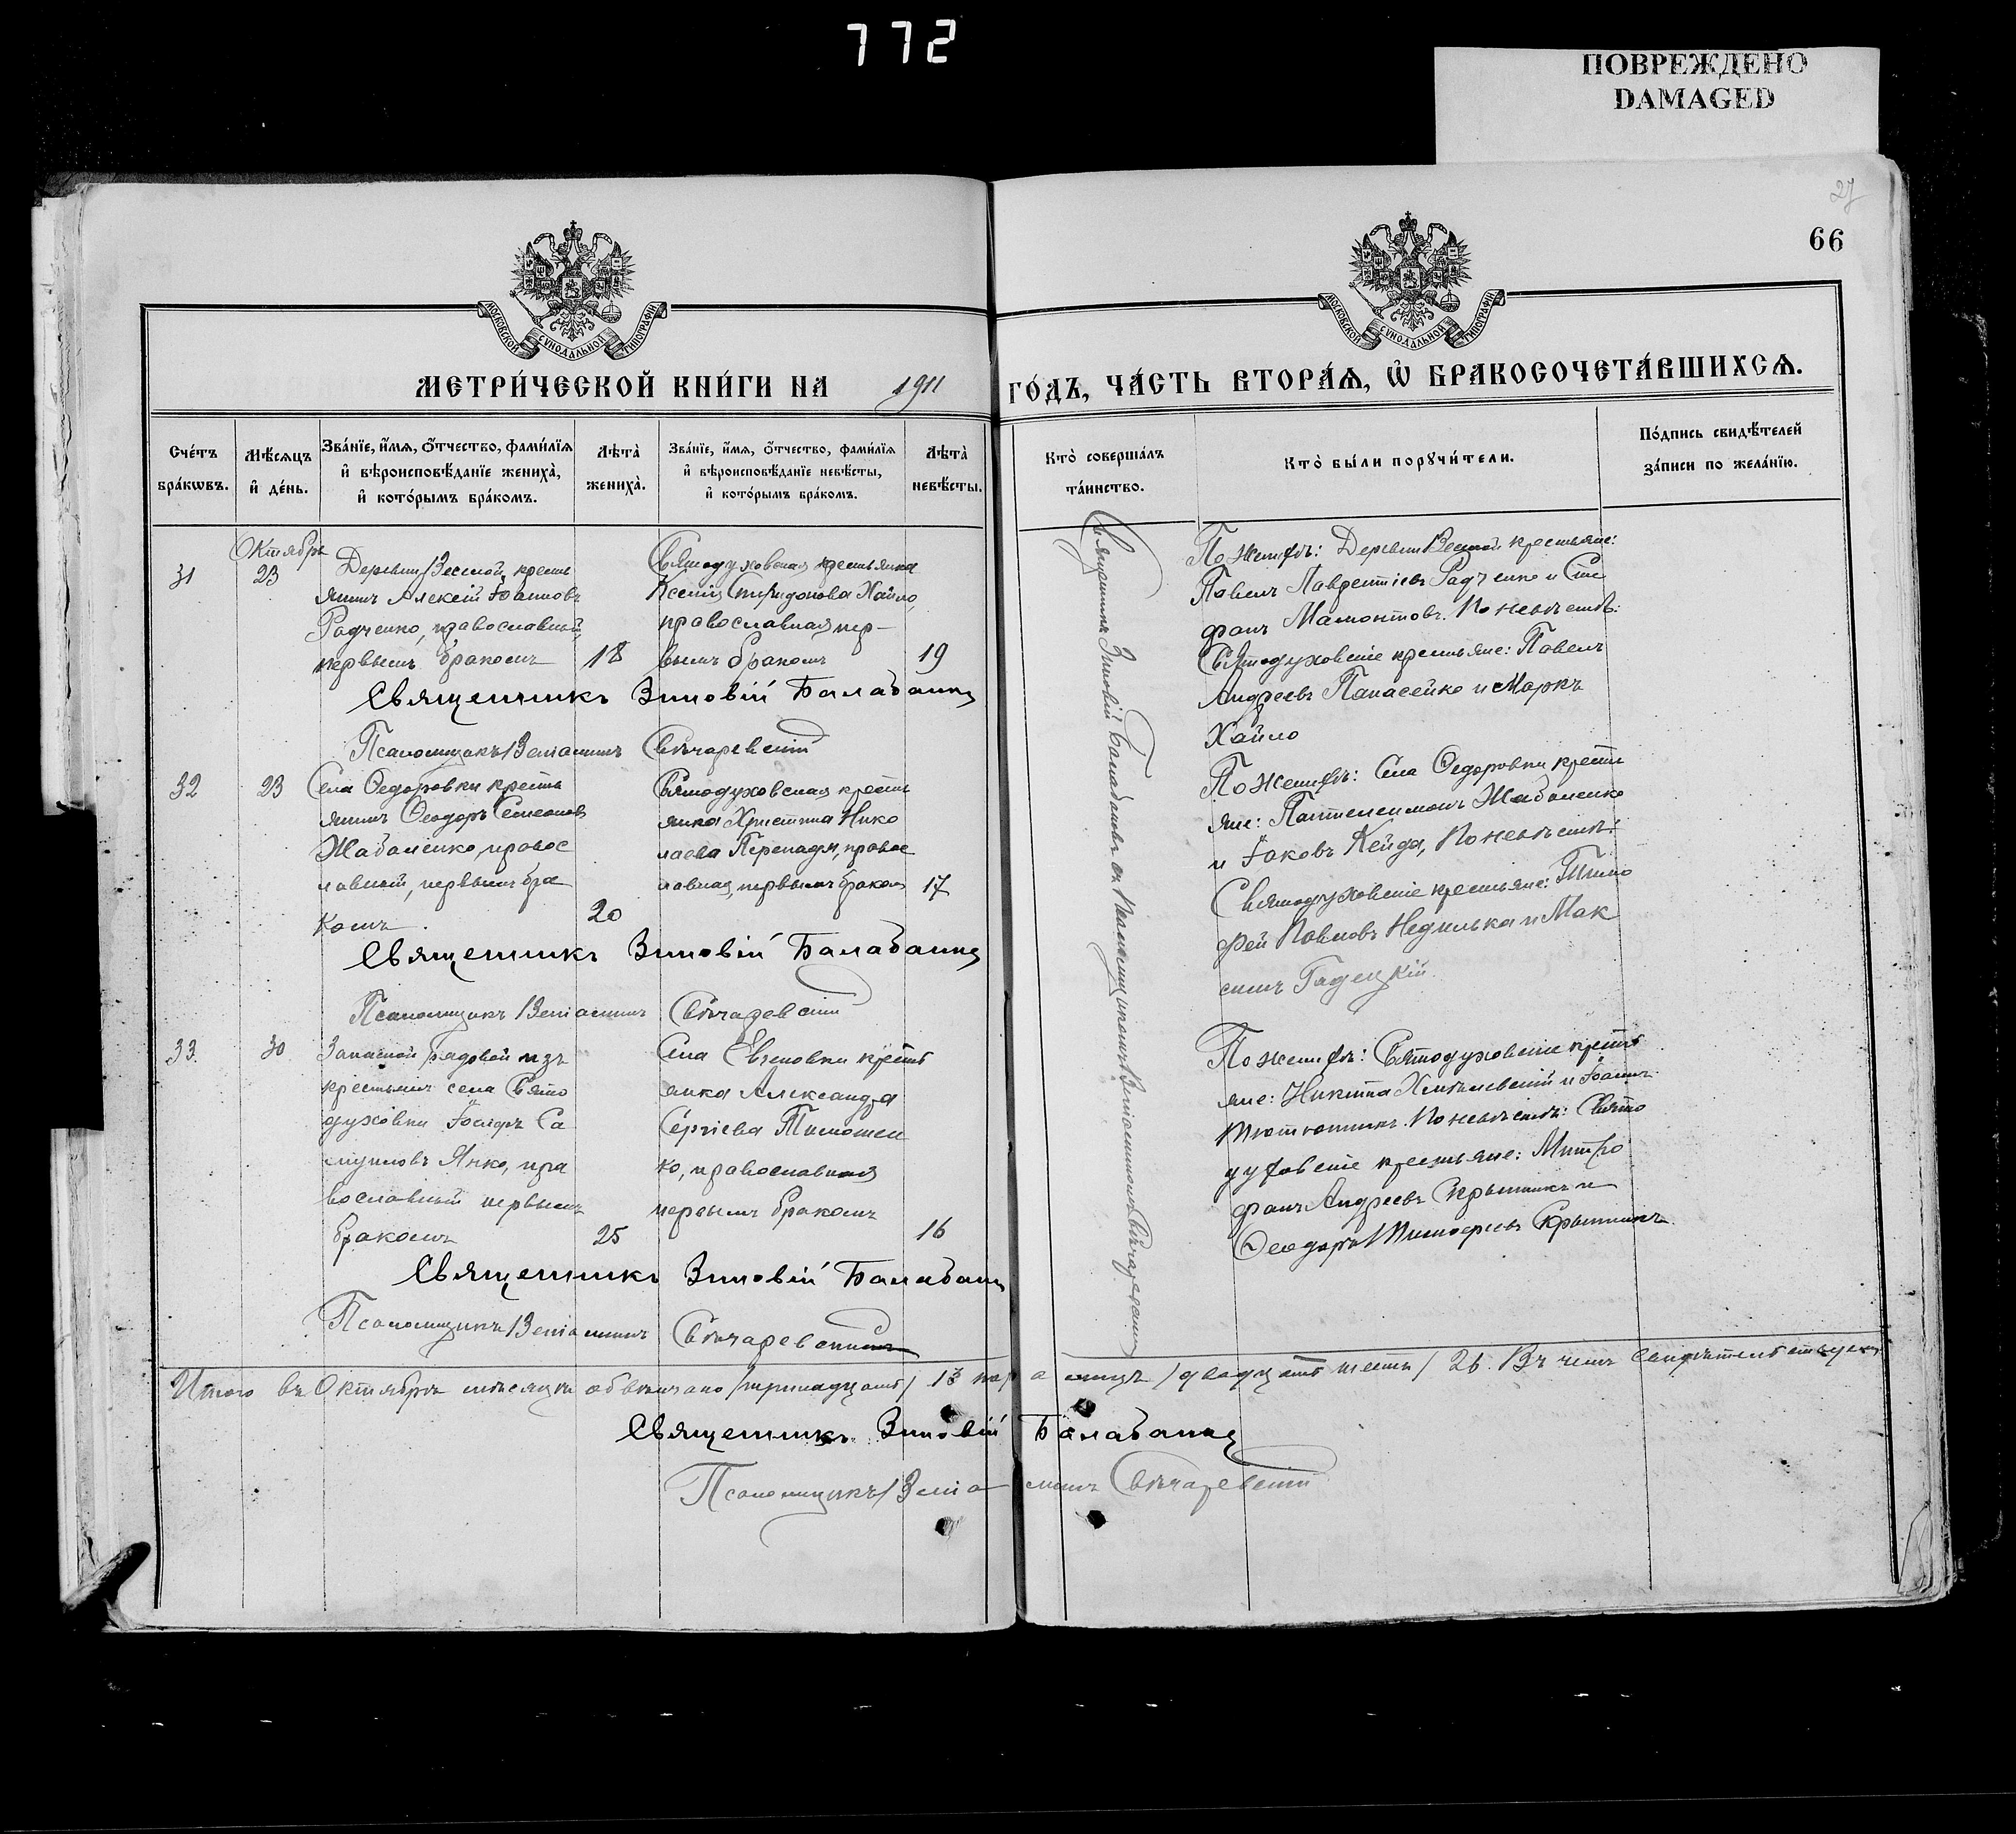 772
ПОВРЕЖДЕНО
DAMAGED
27
66
МОСКОВСКОЙ СѴНОДАЛЬНОЙ ТИПОГРАФІИ
МОСКОВСКОЙ СѴНОДАЛЬНОЙ ТИПОГРАФІИ
МЕТРИ́ЧЕСКОЙ КНИ́ГИ НА 1911 ГО́ДЪ, ЧА́СТЬ ВТОРА́Ѧ, Ѡ҆ БРАКОСОЧЕТА́ВШИХСѦ.
Сче́тъ бра́кѡвъ.
Мѣ́сѧцъ и҆ де́нь.
Зва́нїе, и҆́мѧ, ѻ҆́тчество, фами́лїѧ и҆ вѣроисповѣ́данїе жениха̀, и҆ кото́рымъ бра́комъ.
Лѣ́та̀ жениха̀.
Зва́нїе, и҆́мѧ, ѻ҆́тчество, фами́лїѧ и҆ вѣроисповѣ́данїе невѣ́сты, и҆ кото́рымъ бра́комъ.
Лѣ́та̀ невѣ́сты.
Кто̀ соверша́лъ та́инство.
Кто̀ бы́ли порꙋчи́тели.
По́дпись свидѣ́телей за́писи по жела́нїю.
31
Октября
23
Деревни Веселой кресть
янинъ Алексѣй Іоанновъ
Радченко, православный,
первымъ бракомъ
18
Святодуховская крестьянка
Ксенія Спиридонова Хайло,
православная пер-
вымъ бракомъ
19
Священникъ Зиновій Балабаниц
Псаломщикъ Веніаминъ Свѣчаревскій
По женихѣ: Деревни Веселой крестьяне:
Павелъ Лаврентіевъ Радченко и Сте
фанъ Мамонтовъ. По невѣстѣ:
Святодуховскіе крестьяне: Павелъ
Андреевъ Панасейко и Маркъ
Хайло
32
23
Села Ѳедоровки кресть
янинъ Ѳеодоръ Семеоновъ
Жабаленко, правос
лавный, первымъ бра
комъ
20
Святодуховская кресть
янка Христина Нико
лаева Перепадя, правос
лавная, первымъ бракомъ
17
Священникъ Зиновій Балабаниц
Псаломщикъ Веніаминъ Свѣчаревскій
По женихѣ: Села Ѳедоровки кресть
яне: Пантелеимонъ Жабаленко
и Іаковъ Кейда, По невѣстѣ:
Святодуховскіе крестьяне: Тимо
фей Павловъ Недилька и Мак
симъ Гадецкій
33
30
Запасной рядовой изъ
крестьянъ села Свято
духовки Іосифъ Са
муиловъ Янко, пра
вославный первымъ
бракомъ
25
Села Евгеновки кресть
янка Александра
Сергіева Тимошен
ко, православная
первымъ бракомъ
16
Священникъ Зиновій Балабаниц
Псаломщикъ Веніаминъ Свѣчаревскій
По женихѣ: Святодуховскіе кресть
яне: Никита Хмѣлевскій и Іоаннъ
Тютюнникъ. По невѣстѣ: Свято
духовскіе крестьяне: Митро
фанъ Андреевъ Скрынникъ и
Ѳеодоръ Тимоѳеевъ Скрынникъ
Священникъ Зиновій Балабановъ съ Псаломщикомъ Веніаминомъ Свѣчаревскимъ
Итого въ Октябрѣ мѣсяцѣ обвѣнчано /тринадцать/ 13 пар а лицъ /двадцать шесть/ 26. Въ чемъ свидѣтельствуемъ
Священникъ Зиновій Балабаниц
Псаломщикъ Веніаминъ Свѣчаревскій